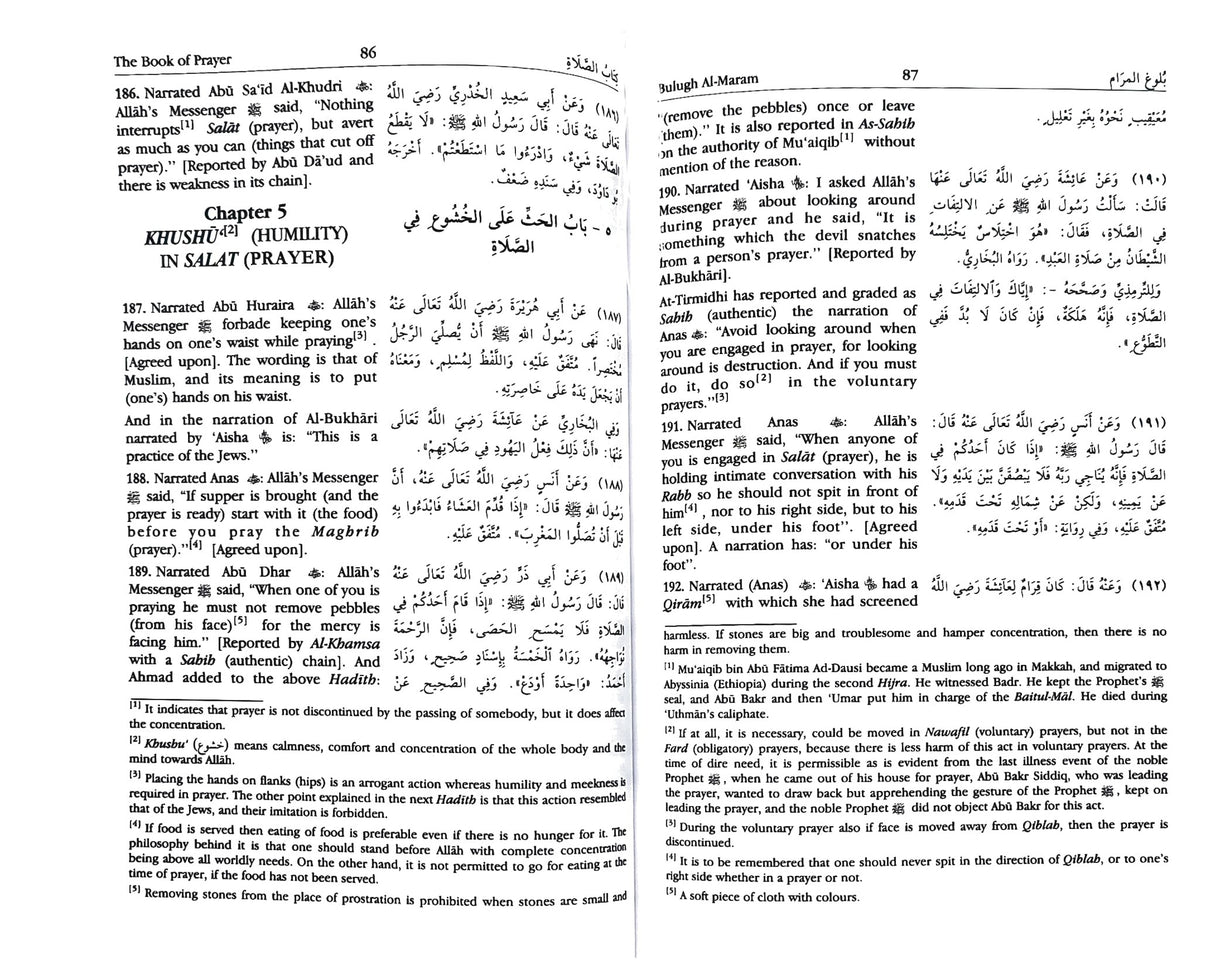 The Book of Prayer 86 كِتَابُ الصَّلَاةِ
186. Narrated Abū Sa'īd Al-Khudri ﷺ:
Allāh's Messenger ﷺ said, "Nothing
interrupts[1] Salāt (prayer), but avert
as much as you can (things that cut off
prayer)." [Reported by Abū Dā'ud and
there is weakness in its chain].
(١٨٦) وَعَنْ أَبِي سَعِيدٍ الخُدْرِيِّ رَضِيَ اللَّهُ
تَعَالَى عَنْهُ قَالَ: قَالَ رَسُولُ اللهِ ﷺ: «لَا يَقْطَعُ
الصَّلَاةَ شَيْءٌ، وَادْرَءُوا مَا اسْتَطَعْتُمْ». أَخْرَجَهُ
أَبُو دَاوُدَ، وَفِي سَنَدِهِ ضَعْفٌ.
Chapter 5
KHUSHŪ'[2] (HUMILITY)
IN SALAT (PRAYER)
٥ - بَابُ الحَثِّ عَلَى الخُشُوعِ فِي
الصَّلَاةِ
187. Narrated Abū Huraira: Allāh's
Messenger ﷺ forbade keeping one's
hands on one's waist while praying[3].
[Agreed upon]. The wording is that of
Muslim, and its meaning is to put
(one's) hands on his waist.
(١٨٧) عَنْ أَبِي هُرَيْرَةَ رَضِيَ اللَّهُ تَعَالَى عَنْهُ
قَالَ: نَهَى رَسُولُ اللهِ ﷺ أَنْ يُصَلِّيَ الرَّجُلُ
مُخْتَصِراً. مُتَّفَقٌ عَلَيْهِ، وَاللَّفْظُ لِمُسْلِمٍ، وَمَعْنَاهُ
أَنْ يَجْعَلَ يَدَهُ عَلَى خَاصِرَتِهِ.
And in the narration of Al-Bukhāri
narrated by 'Aisha is: "This is a
practice of the Jews."
وَفِي البُخَارِيِّ عَنْ عَآئِشَةَ رَضِيَ اللَّهُ تَعَالَى
عَنْهَا: «أَنَّ ذَلِكَ فِعْلُ اليَهُودِ فِي صَلَاتِهِمْ».
188. Narrated Anas: Allāh's Messenger
ﷺ said, "If supper is brought (and the
prayer is ready) start with it (the food)
before you pray the Maghrib
(prayer)."[4] [Agreed upon].
(١٨٨) وَعَنْ أَنَسٍ رَضِيَ اللَّهُ تَعَالَى عَنْهُ، أَنَّ
رَسُولَ اللهِ ﷺ قَالَ: «إِذَا قُدِّمَ العَشَاءُ فَابْدَءُوا بِهِ
قَبْلَ أَنْ تُصَلُّوا المَغْرِبَ». مُتَّفَقٌ عَلَيْهِ.
189. Narrated Abū Dhar: Allāh's
Messenger ﷺ said, "When one of you is
praying he must not remove pebbles
(from his face)[5] for the mercy is
facing him." [Reported by Al-Khamsa
with a Sahih (authentic) chain]. And
Ahmad added to the above Hadīth:
(١٨٩) وَعَنْ أَبِي ذَرٍّ رَضِيَ اللَّهُ تَعَالَى عَنْهُ
قَالَ: قَالَ رَسُولُ اللهِ ﷺ: «إِذَا قَامَ أَحَدُكُمْ فِي
الصَّلَاةِ فَلَا يَمْسَحِ الحَصَى، فَإِنَّ الرَّحْمَةَ
تُوَاجِهُهُ». رَوَاهُ الخَمْسَةُ بِإِسْنَادٍ صَحِيحٍ، وَزَادَ
أَحْمَدُ: «وَاحِدَةً أَوْدَعْ». وَفِي الصَّحِيحِ عَنْ
[1] It indicates that prayer is not discontinued by the passing of somebody, but it does affect
the concentration.
[2] Khushu' (خشوع) means calmness, comfort and concentration of the whole body and the
mind towards Allāh.
[3] Placing the hands on flanks (hips) is an arrogant action whereas humility and meekness is
required in prayer. The other point explained in the next Hadīth is that this action resembled
that of the Jews, and their imitation is forbidden.
[4] If food is served then eating of food is preferable even if there is no hunger for it. The
philosophy behind it is that one should stand before Allāh with complete concentration
being above all worldly needs. On the other hand, it is not permitted to go for eating at the
time of prayer, if the food has not been served.
[5] Removing stones from the place of prostration is prohibited when stones are small and
Bulugh Al-Maram 87 بُلُوغُ المرَام
"(remove the pebbles) once or leave
them)." It is also reported in As-Sahih
on the authority of Mu'aiqib[1] without
mention of the reason.
مُعَيْقِيبٍ نَحْوُهُ بِغَيْرِ تَعْلِيلٍ.
190. Narrated 'Aisha: I asked Allāh's
Messenger ﷺ about looking around
during prayer and he said, "It is
something which the devil snatches
from a person's prayer." [Reported by
Al-Bukhāri].
(١٩٠) وَعَنْ عَائِشَةَ رَضِيَ اللَّهُ تَعَالَى عَنْهَا
قَالَتْ: سَأَلْتُ رَسُولَ اللهِ ﷺ عَنِ الالتِفَاتِ
فِي الصَّلَاةِ، فَقَالَ: «هُوَ اخْتِلَاسٌ يَخْتَلِسُهُ
الشَّيْطَانُ مِنْ صَلَاةِ العَبْدِ». رَوَاهُ البُخَارِيُّ.
At-Tirmidhi has reported and graded as
Sahih (authentic) the narration of
Anas: "Avoid looking around when
you are engaged in prayer, for looking
around is destruction. And if you must
do it, do so[2] in the voluntary
prayers."[3]
وَلِلتِّرْمِذِيِّ وَصَحَّحَهُ -: «إِيَّاكَ وَالالتِفَاتَ فِي
الصَّلَاةِ، فَإِنَّهُ هَلَكَةٌ، فَإِنْ كَانَ لَا بُدَّ فَفِي
التَّطَوُّعِ».
191. Narrated Anas: Allāh's
Messenger ﷺ said, "When anyone of
you is engaged in Salāt (prayer), he is
holding intimate conversation with his
Rabb so he should not spit in front of
him[4], nor to his right side, but to his
left side, under his foot". [Agreed
upon]. A narration has: "or under his
foot".
(١٩١) وَعَنْ أَنَسٍ رَضِيَ اللَّهُ تَعَالَى عَنْهُ قَالَ:
قَالَ رَسُولُ اللهِ ﷺ: «إِذَا كَانَ أَحَدُكُمْ فِي
الصَّلَاةِ فَإِنَّهُ يُنَاجِي رَبَّهُ فَلَا يَبْصُقَنَّ بَيْنَ يَدَيْهِ وَلَا
عَنْ يَمِينِهِ، وَلَكِنْ عَنْ شِمَالِهِ تَحْتَ قَدَمِهِ».
مُتَّفَقٌ عَلَيْهِ، وَفِي رِوَايَةٍ: «أَوْ تَحْتَ قَدَمِهِ».
192. Narrated (Anas): 'Aisha had a
Qirām[5] with which she had screened
(١٩٢) وَعَنْهُ قَالَ: كَانَ قِرَامٌ لِعَائِشَةَ رَضِيَ اللَّهُ
harmless. If stones are big and troublesome and hamper concentration, then there is no
harm in removing them.
[1] Mu'aiqib bin Abū Fātima Ad-Dausi became a Muslim long ago in Makkah, and migrated to
Abyssinia (Ethiopia) during the second Hijra. He witnessed Badr. He kept the Prophet's ﷺ
seal, and Abū Bakr and then 'Umar put him in charge of the Baitul-Māl. He died during
'Uthmān's caliphate.
[2] If at all, it is necessary, could be moved in Nawafil (voluntary) prayers, but not in the
Fard (obligatory) prayers, because there is less harm of this act in voluntary prayers. At the
time of dire need, it is permissible as is evident from the last illness event of the noble
Prophet ﷺ, when he came out of his house for prayer, Abū Bakr Siddiq, who was leading
the prayer, wanted to draw back but apprehending the gesture of the Prophet ﷺ, kept on
leading the prayer, and the noble Prophet ﷺ did not object Abū Bakr for this act.
[3] During the voluntary prayer also if face is moved away from Qiblah, then the prayer is
discontinued.
[4] It is to be remembered that one should never spit in the direction of Qiblah, or to one's
right side whether in a prayer or not.
[5] A soft piece of cloth with colours.